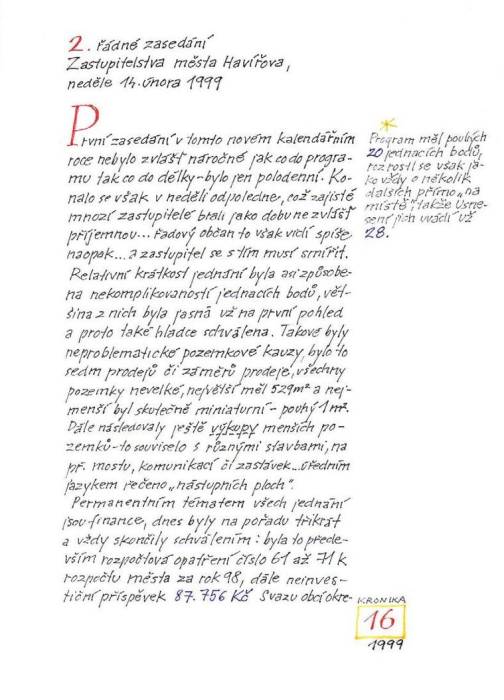 2. řádné zasedání
Zastupitelstva města Havířova,
neděle 14. února 1999
První zasedání v tomto novém kalendářním
roce nebylo zvlášť náročné jak co do progra-
mu tak co do délky - bylo jen polodenní. Ko-
nalo se však v neděli odpoledne, což zajisté
mnozí zastupitelé brali jako dobu ne zvlášť
příjemnou... řadový občan to však vidí spíše
naopak... a zastupitel se s tím musí smířit.
Relativní krátkost jednání byla asi způsobe-
na nekomplikovaností jednacích bodů, vět-
šina z nich byla jasná už na první pohled
a proto také hladce schválena. Takové byly
neproblematické pozemkové kauzy, bylo to
sedm prodejů či záměrů prodeje, všechny
pozemky nevelké, největší měl 529m² a nej-
menší byl skutečně miniaturní - pouhý 1m².
Dále následovaly ještě výkupy menších po-
zemků - to souviselo s různými stavbami, na
př. mostu, komunikací či zastávek... úředním
jazykem řečeno „nástupních ploch".
Permanentním tématem všech jednání
jsou finance, dnes byly na pořadu třikrát
a vždy skončily schválením: byla to přede-
vším rozpočtová opatření číslo 61 až 71 k
rozpočtu města za rok 98, dále neinves-
tiční příspěvek 87.756 Kč Svazu obcí okre-
Program měl pouhých
20 jednacích bodů,
rozrostl se však ja-
ko vždy o několik
dalších přímo „na
místě", takže usne-
sení jich uvádí už
28.
KRONIKA
16
1999